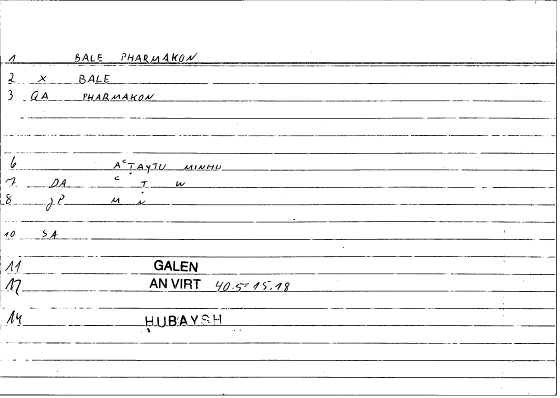 1 BALE PHARMAKON
2 x BALE
3 GA PHARMAKON
6 AʿṬAYTU MINHU
7 DA ʿ Ṭ W
8 gP M N
10 SA
11 GALEN
12 AN VIRT 40.5= 15.18
14 ḤUBAYSH